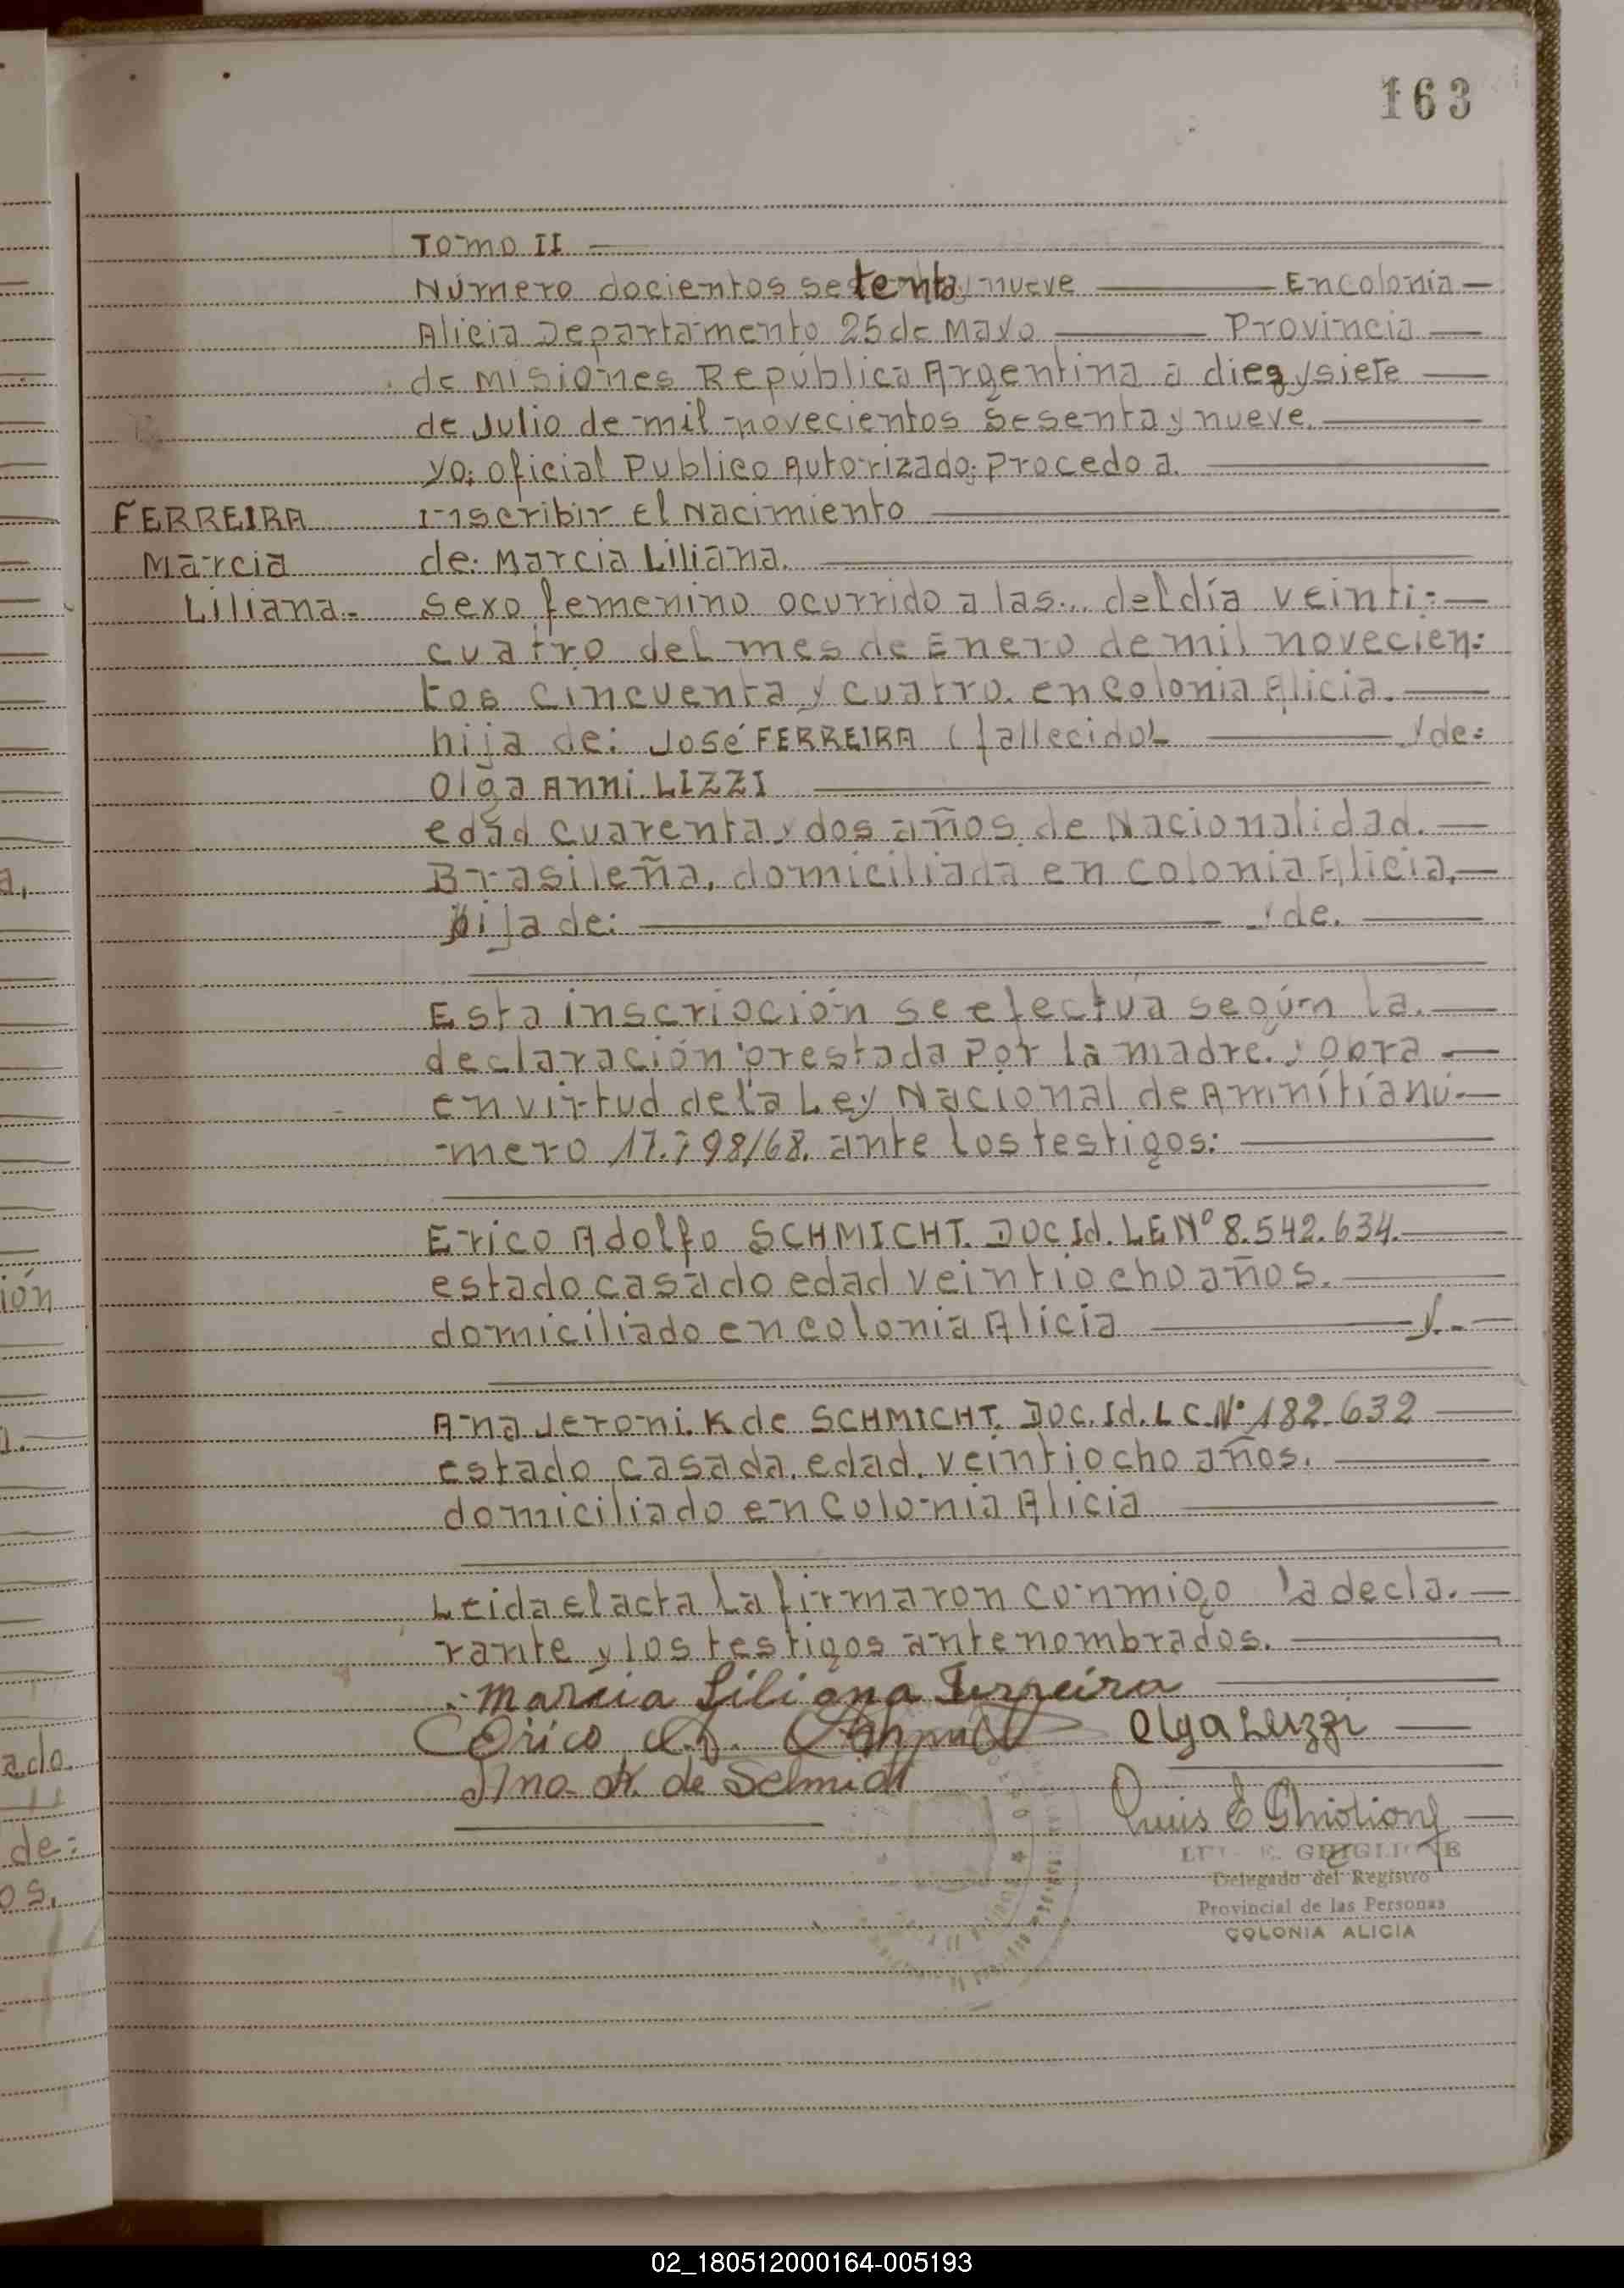 163
TOMO II
Número docientos setenta y nueve En colonia
Alicia Departamento 25 de Mayo Provincia
de Misiones República Argentina a diez y siete
de Julio de mil novecientos sesenta y nueve.
yo; oficial Publico Autorizado; Procedo a.
FERREIRA inscribir el Nacimiento
Marcia de: Marcia Liliana.
Liliana.- sexo femenino ocurrido a las... del día veinti-
cuatro del mes de Enero de mil novecien:
tos cincuenta y cuatro. en colonia Alicia.
hija de: José FERREIRA (fallecido) y de:
Olga Anni. LIZZI
edad cuarenta y dos años de Nacionalidad.
Brasileña, domiciliada en colonia Alicia,
hija de: y de.
Esta inscripción se efectúa según la.
declaración prestada por la madre. y obra
en virtud de la Ley Nacional de Amnítía nú-
mero 17.798/68. ante los testigos:
Erico Adolfo SCHMICHT. DOC Id. LE Nº 8.542.634.
estado casado edad veintiocho años.
domiciliado en colonia Alicia y.-
Ana Jeroni. K de SCHMICHT. DOC. Id. L C. Nº 182.632
estado casada. edad. veintiocho años.
domiciliado en Colonia Alicia
Leida el acta la firmaron conmigo la decla.
rante y los testigos antenombrados.
Marcia Liliana Ferreira
Erico A. Olga Luzzi
Ana K. de Schmidt
Luis E Ghiglione
E. GHIGLIONE
Delegado del Registro
Provincial de las Personas
COLONIA ALICIA
a,
ión
ado.
de:
os.
02_180512000164-005193